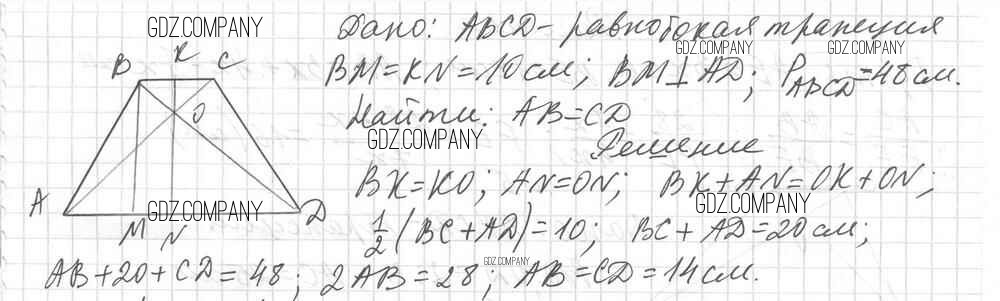 GDZ.COMPANY
Дано: ABCD - равнобокая трапеция
GDZ.COMPANY GDZ.COMPANY
B K C
BM=KN=10 см; BM⊥AD; P_ABCD=48 см.
O
Найти: AB=CD
GDZ.COMPANY
Решение
BK=KO; AN=ON; BK+AN=OK+ON;
A D
GDZ.COMPANY GDZ.COMPANY
M N
1/2 (BC+AD)=10; BC+AD=20 см;
GDZ.COMPANY
AB+20+CD=48; 2AB=28; AB=CD=14 см.